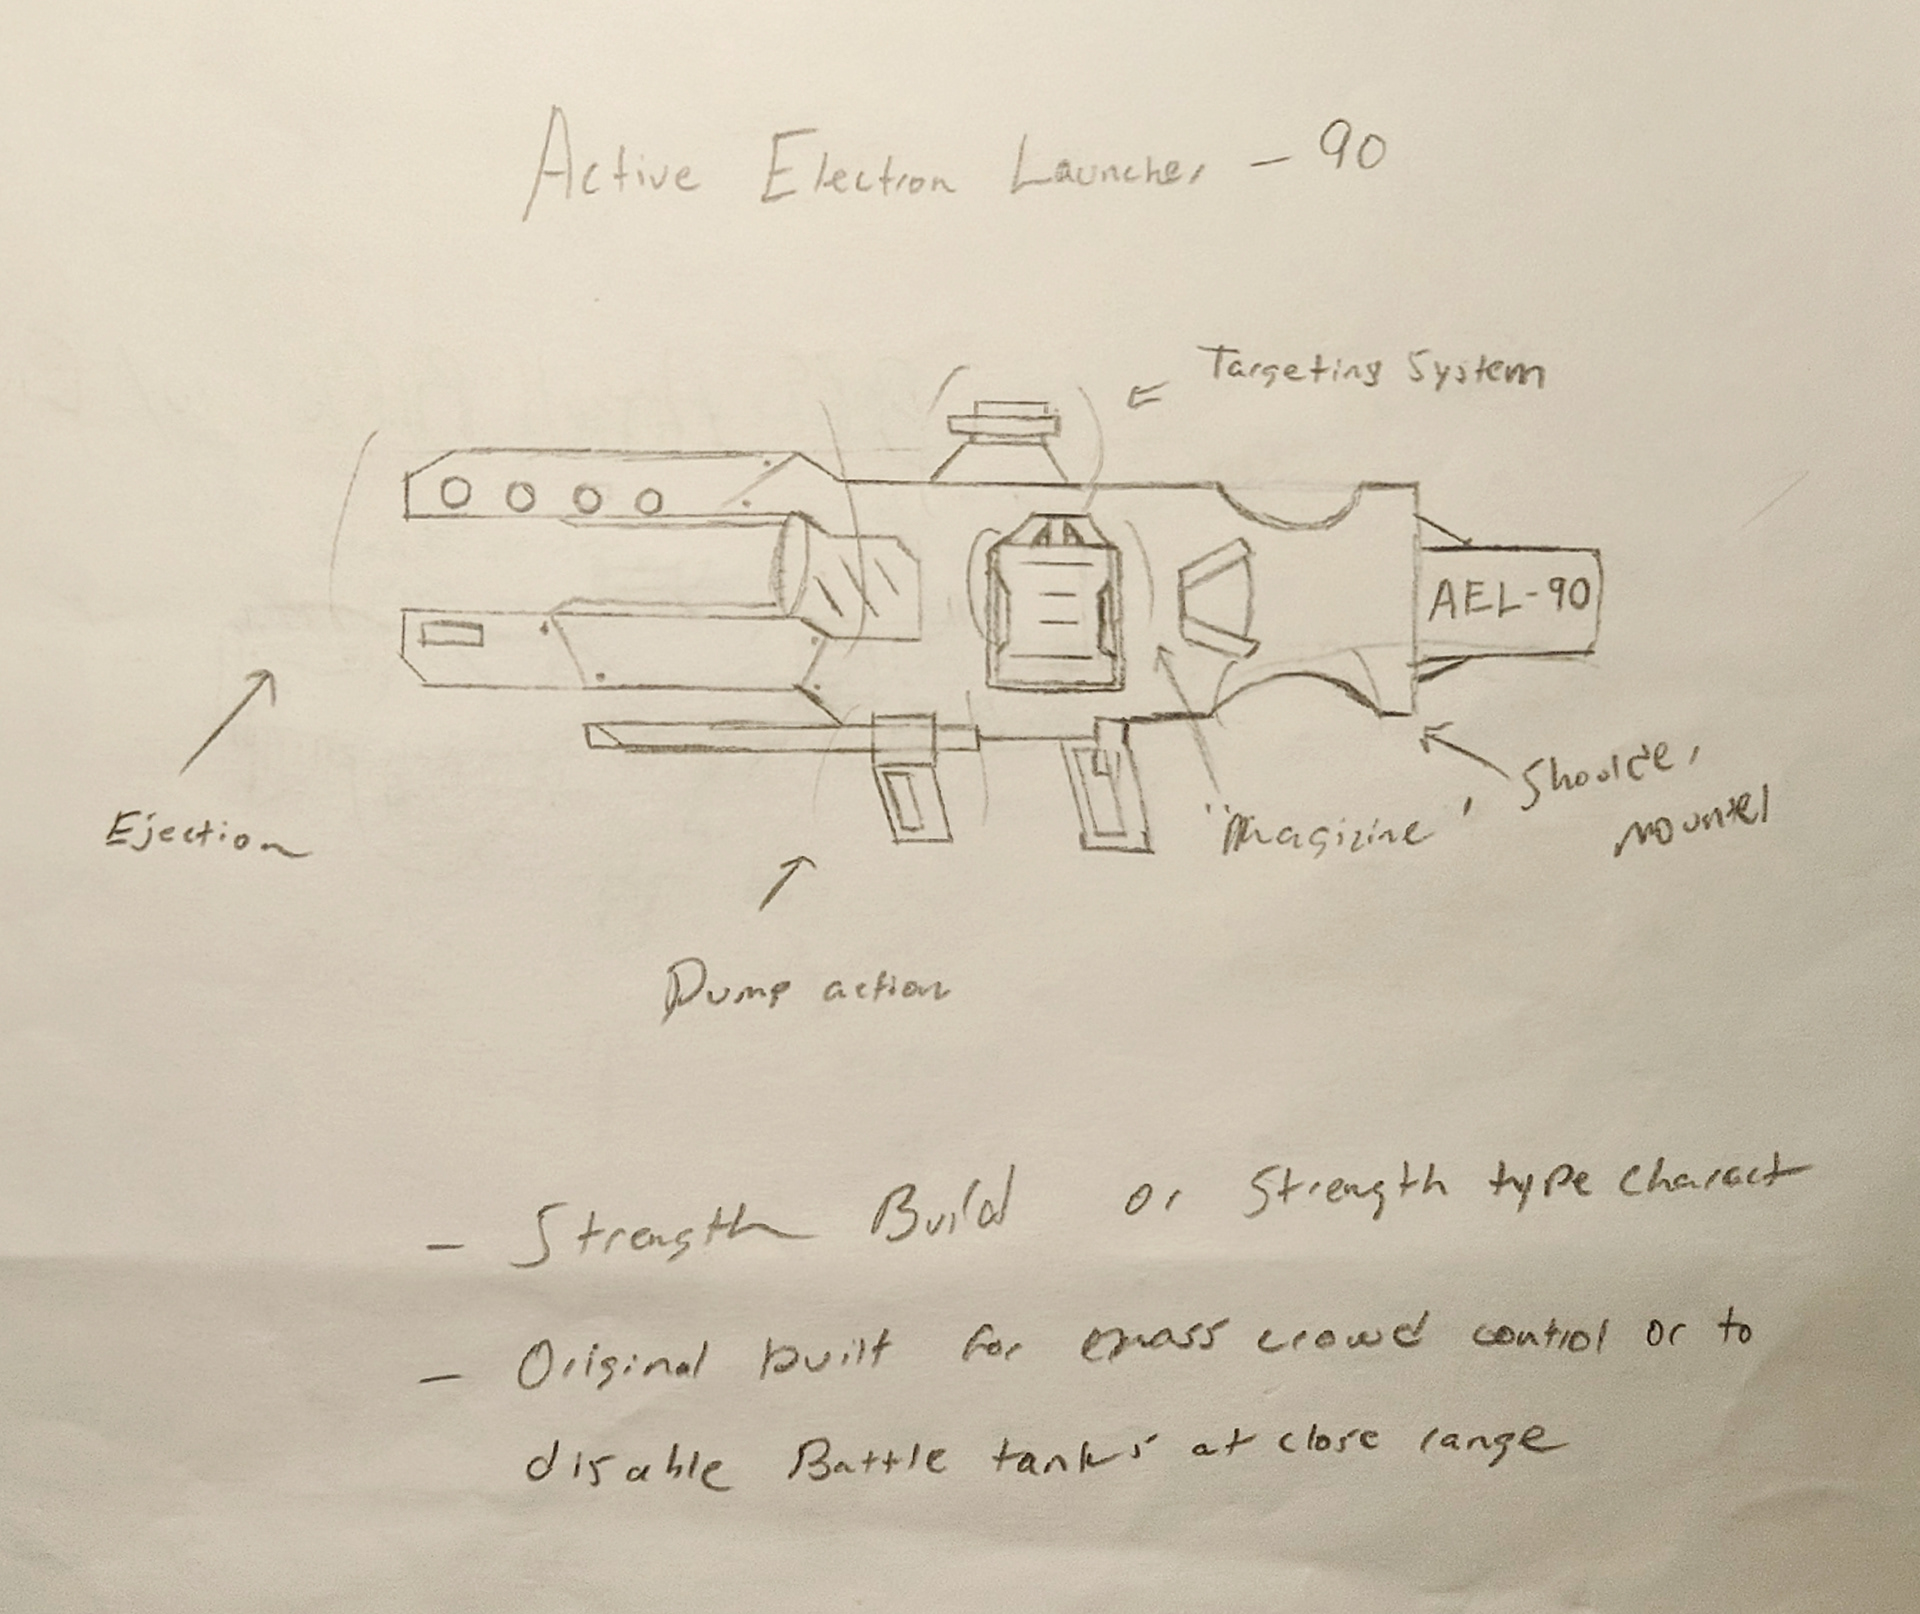 Active Electron Launcher - 90
Targeting System
AEL-90
Ejection
"Magizine"
Shoulder
mounted
Pump action
- Strength Build or Strength type charact
- Original built for mass crowd control or to
disable Battle tanks at close range